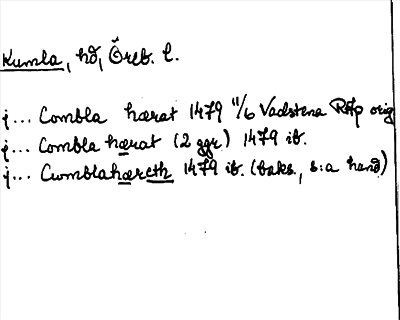 Kumla, hd, Öreb. l.
j... Combla hærat 1479 11/6 Vadstena RAp orig
j... Combla hærat (2 ggr) 1479 ib.
j... Cwmblahæreth 1479 ib. (baks., s:a hand)